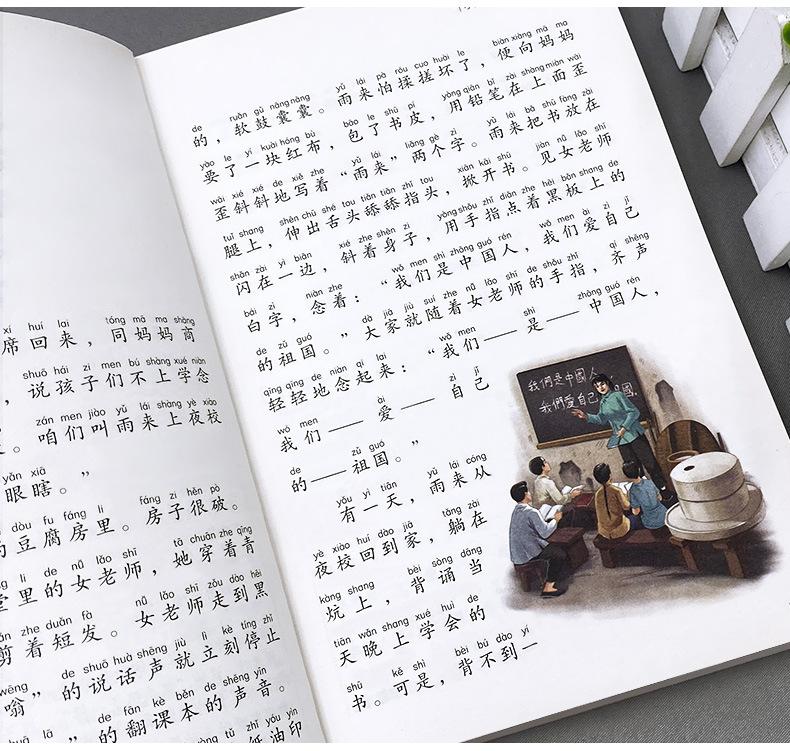 xí huí lai tóng mā ma shāng
席回来，同妈妈商
shuō hái zi men bú shàng xué niàn
，说孩子们不上学念
zán men jiào yǔ lái shàng yè xiào
。咱们叫雨来上夜校
yǎn xiā
眼瞎。”
dòu fu fáng li fáng zi hěn pò
豆腐房里。房子很破。
li de nǚ lǎo shī tā chuān zhe qīng
里的女老师，她穿着青
zhe duǎn fà nǚ lǎo shī zǒu dào hēi
剪着短发。女老师走到黑
wēng de shuō huà shēng jiù lì kè tíng zhǐ
嗡”的说话声就立刻停止
lā de fān kè běn de shēng yīn
的翻课本的声音。
zhǐ yóu yìn
纸油印
de ruǎn gǔ nāng nāng yǔ lái pà róu cuo huài le biàn xiàng mā ma
的，软鼓囊囊。雨来怕揉搓坏了，便向妈妈
yào le yí kuài hóng bù bāo le shū pí yòng qiān bǐ zài shàng miàn wāi
要了一块红布，包了书皮，用铅笔在上面歪
wāi xié xié de xiě zhe yǔ lái liǎng gè zì yǔ lái bǎ shū fàng zài
歪斜斜地写着“雨来”两个字。雨来把书放在
tuǐ shang shēn chū shé tou tiǎn tiǎn zhǐ tou xiān kāi shū jiàn nǚ lǎo shī
腿上，伸出舌头舔舔指头，掀开书。见女老师
shǎn zài yì biān xié zhe shēn zi yòng shǒu zhǐ diǎn zhe hēi bǎn shang de
闪在一边，斜着身子，用手指点着黑板上的
bái zì niàn zhe wǒ men shì zhōng guó rén wǒ men ài zì jǐ
白字，念着：“我们是中国人，我们爱自己
de zǔ guó dà jiā jiù suí zhe nǚ lǎo shī de shǒu zhǐ qí shēng
的祖国。”大家就随着女老师的手指，齐声
qīng qīng de niàn qǐ lai wǒ men shì zhōng guó rén
轻轻地念起来：“我们——是——中国人，
wǒ men ài zì jǐ
我们——爱——自己
de zǔ guó
的——祖国。”
yǒu yì tiān yǔ lái cóng
有一天，雨来从
yè xiào huí dào jiā tǎng zài
夜校回到家，躺在
kàng shang bèi sòng dàng
炕上，背诵当
tiān wǎn shang xué huì de
天晚上学会的
shū kě shì bèi bú dào yí
书。可是，背不到一
我們是中國人
我們愛自己
國